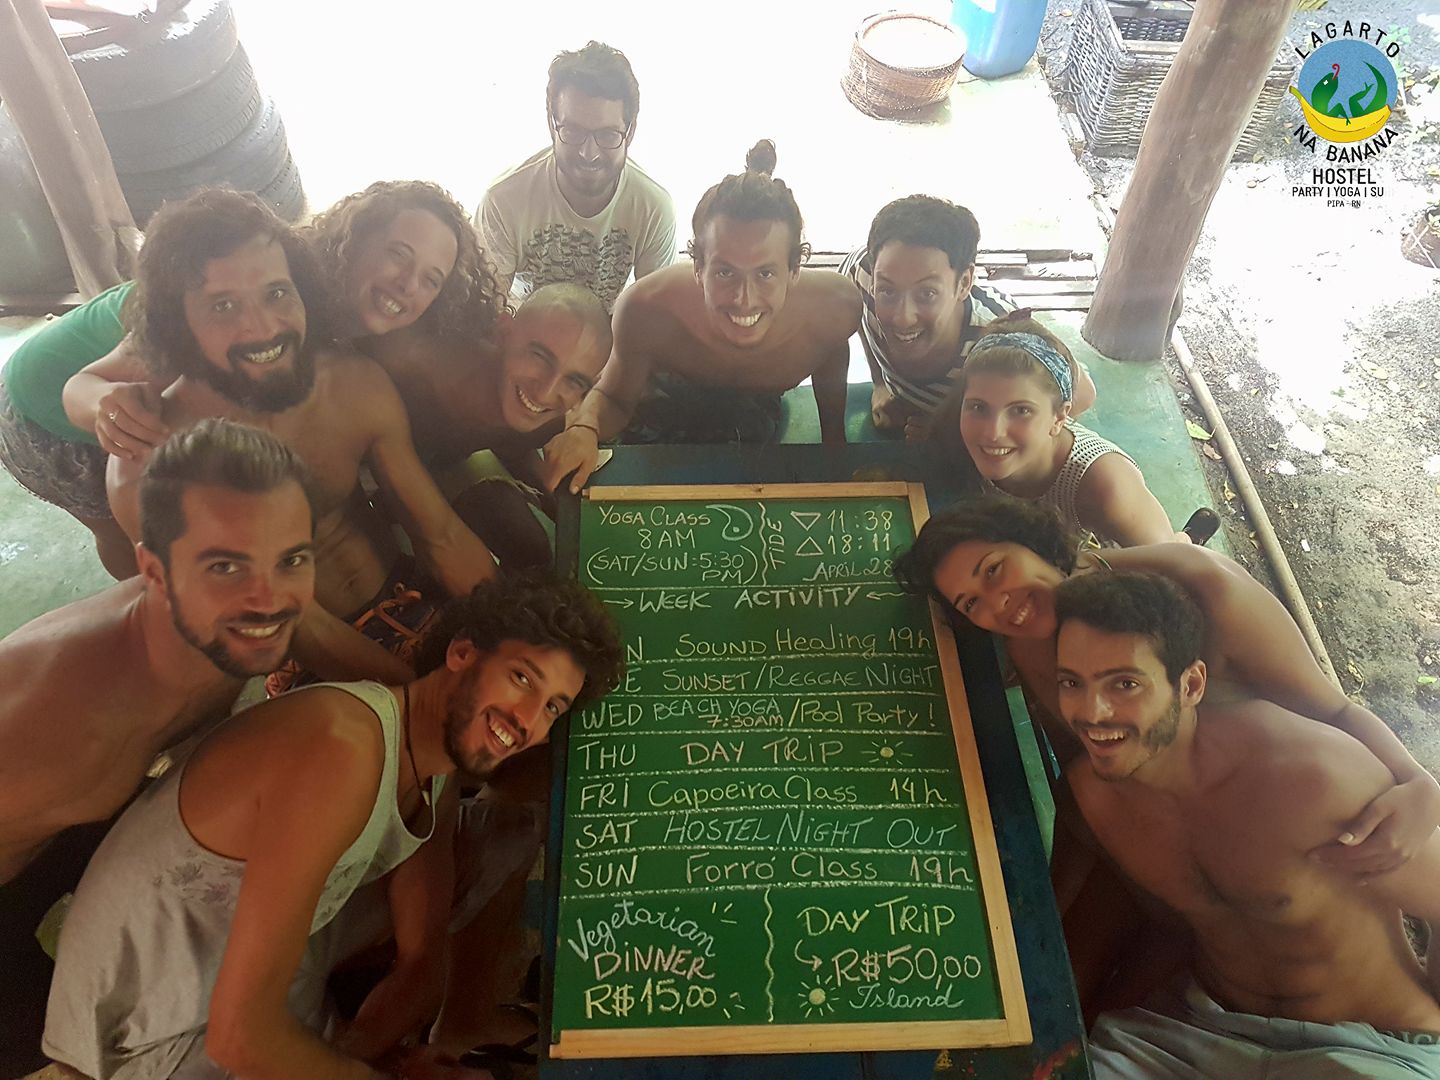 LAGARTO
NA BANANA
HOSTEL
PARTY | YOGA | SU
PIPA - RN
YOGA CLASS
8 AM
(SAT/SUN: 5:30 PM)
TIDE
▽ 11:38
△ 18:11
APRIL 28
→ WEEK ACTIVITY ←
N SOUND Healing 19h
E SUNSET/REGGAE NIGHT
WED BEACH YOGA 7:30AM /Pool Party!
THU DAY TRIP
FRI Capoeira Class 14h
SAT HOSTEL NIGHT OUT
SUN Forró Class 19h
Vegetarian
DINNER
R$15,00
DAY TRIP
R$50,00
Island